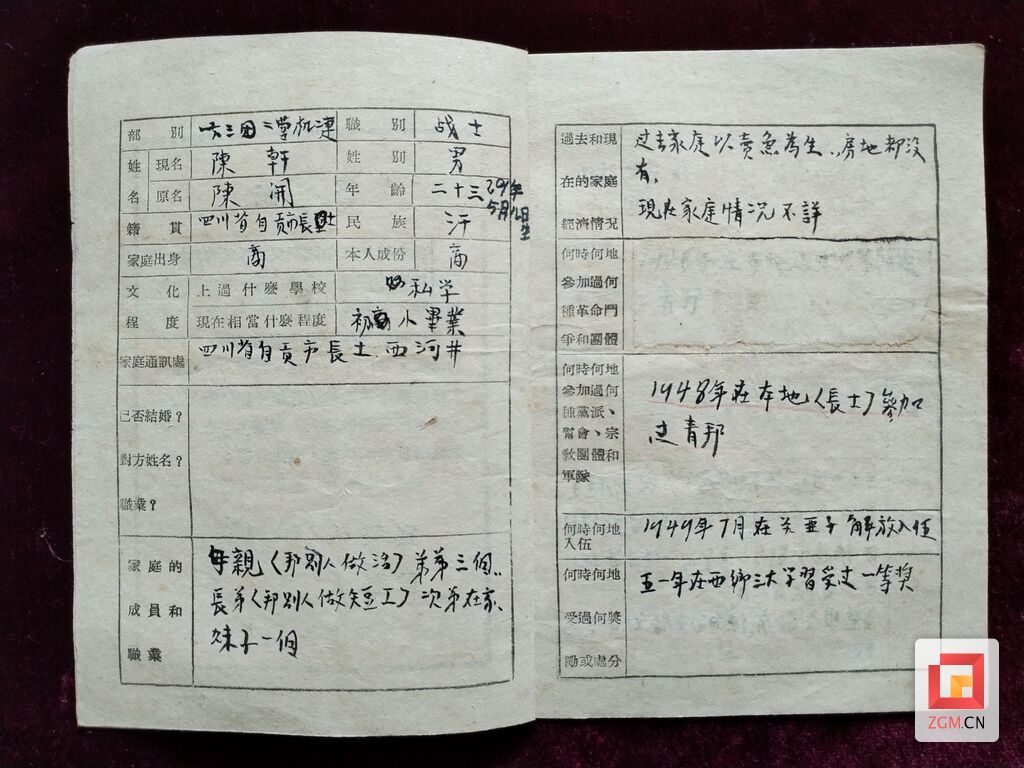 部別 六三团二营机连 職別 战士
姓名 現名 陳軒 姓別 男
原名 陳開 年齡 二十三 29年5月12日生
籍貫 四川省自贡市長土 民族 汗
家庭出身 商 本人成份 商
文化程度 上過什麼學校 私学
現在相當什麼程度 初小畢業
家庭通訊處 四川省自贡市長土西河井
已否結婚？
對方姓名？
職業？
家庭的成員和職業 母親（邦别人做活）弟弟三個、
長弟（邦别人做短工）次弟在家、
妹子一個
過去和現在的家庭經濟情況 过去家庭以賣魚為生、房地都没
有、
現在家庭情况不詳
何時何地參加過何種革命鬥爭和團體
何時何地參加過何種黨派、幫會、宗教團體和軍隊 1948年在本地（長土）參加
过青邦
何時何地入伍 1949年7月在关垩子解放入伍
何時何地受過何獎勵或處分 五一年在西鄉三大学習受过一等奖
ZGM.CN